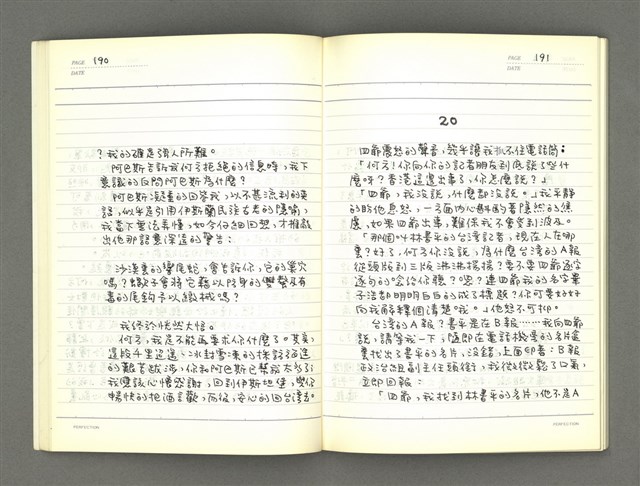 PAGE 190
DATE
？我的確是強人所難。
阿巴斯告訴我何予拒絕的信息時，我下
意識的反問阿巴斯為什麼？
阿巴斯凝重的回答我，以不甚流利的英
語，似乎是引用伊斯蘭民族古老的隱喻，
我當下無法弄懂，如今仔細回想，才推敲
出他那語意深遠的警告：
沙漠裏的響尾蛇，會告訴你，它的巢穴
嗎？蠍子會將它藉以防身的雙螯及有
毒的尾鉤予以繳械嗎？
我終於恍然大悟。
何予，我是不能再要求你什麼了。其實，
這段千里迢迢，冰封雪凍的
的艱苦跋涉，你和阿巴斯已幫我太多了
我應該心懷感謝，回到伊斯坦堡，與你
暢快的把酒言歡，而後，安心的回台灣去。
PERFECTION
PAGE 191
DATE
20
四爺震怒的聲音，幾乎讓我抓不住電話筒：
「何予！你向你的記者朋友到底說了些什
麼呀？香港這邊出事了，你怎麼說？」
「四爺，我沒說，什麼都沒說。」我平靜
的聆他息怒，一方面內心斟酌著隱然的焦
慮，如果四爺出事，難保我不會受到波及。
「那個叫林書平的台灣記者，現在人在哪
裏？好了，何予你沒說，為什麼台灣的A報
從頭版到三版沸沸揚揚？要不要四爺逐字
逐句的唸給你聽？嗯？連四爺我的名字葉
子洛都明明白白的成了標題？你可要好好
向我解釋個清楚哦。」他怒不可抑。
台灣的A報？書平是在B報……我向四爺
說，請等我一下，隨即在電話機旁的名片盒
裏找出了書平的名片，沒錯，上面印著：B報
政治組副主任頭銜，我從從鬆了口氣，
立即回報：
「四爺，我找到林書平的名片，他不是A
PERFECTION